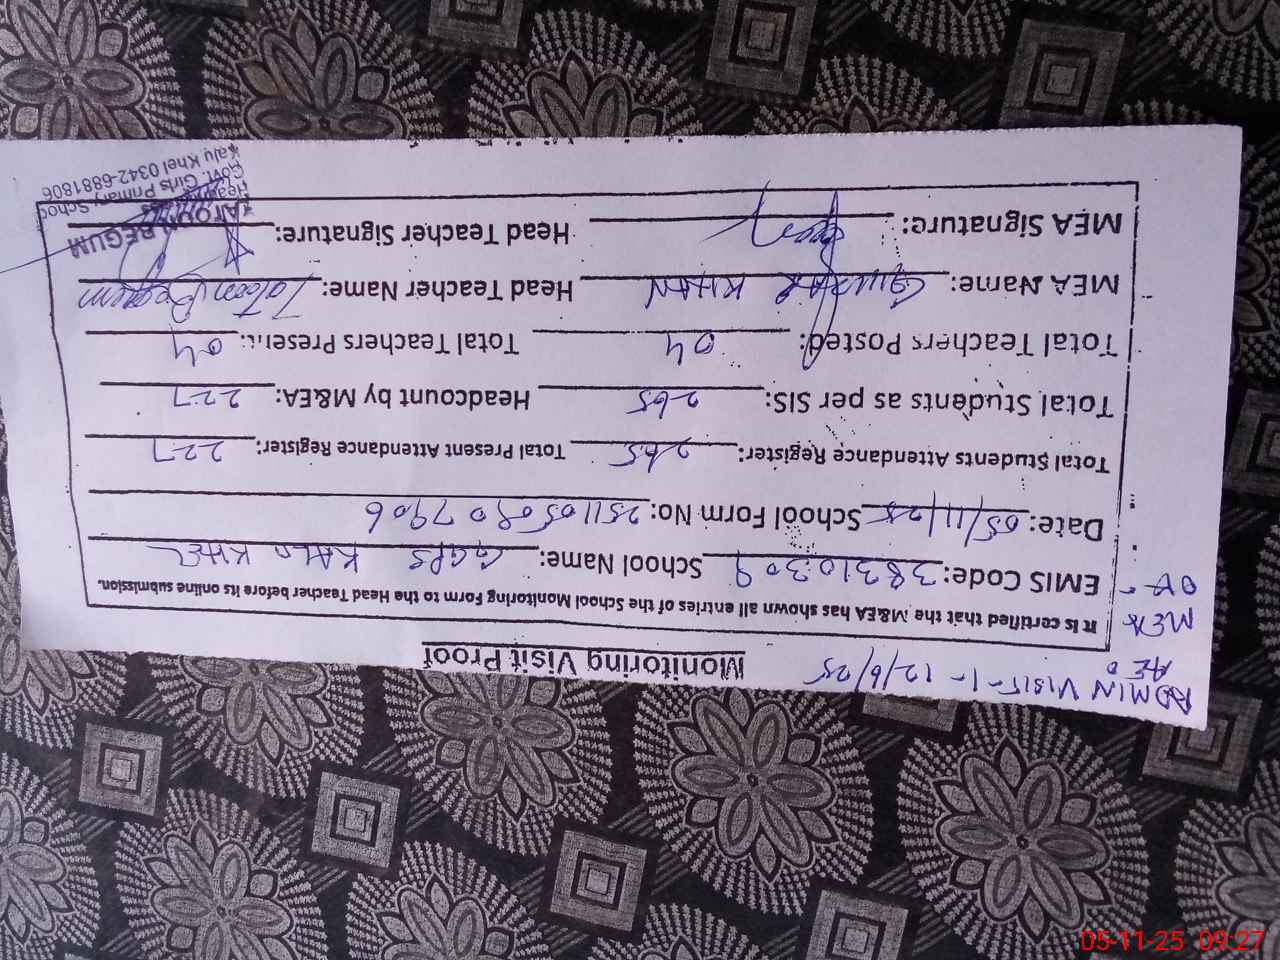 ADMIN VISIT-1- 12/6/25
AEO
Monitoring Visit Proof
MEA
OK-
It is certified that the M&EA has shown all entries of the School Monitoring Form to the Head Teacher before its online submission.
EMIS Code: 38310309 School Name: GGPS KALU KHEL
Date: 05/11/25 School Form No: 2511050907906
Total Students Attendance Register: 265 Total Present Attendance Register: 227
Total Students as per SIS: 265 Headcount by M&EA: 227
Total Teachers Posted: 04 Total Teachers Present: 04
MEA Name: GULZAR KHAN Head Teacher Name: Zatoon Begum
MEA Signature: Head Teacher Signature:
BEGUM
Govt. Girls Primary School
Kalu Khel 0342-6881806
05-11-25 09:27